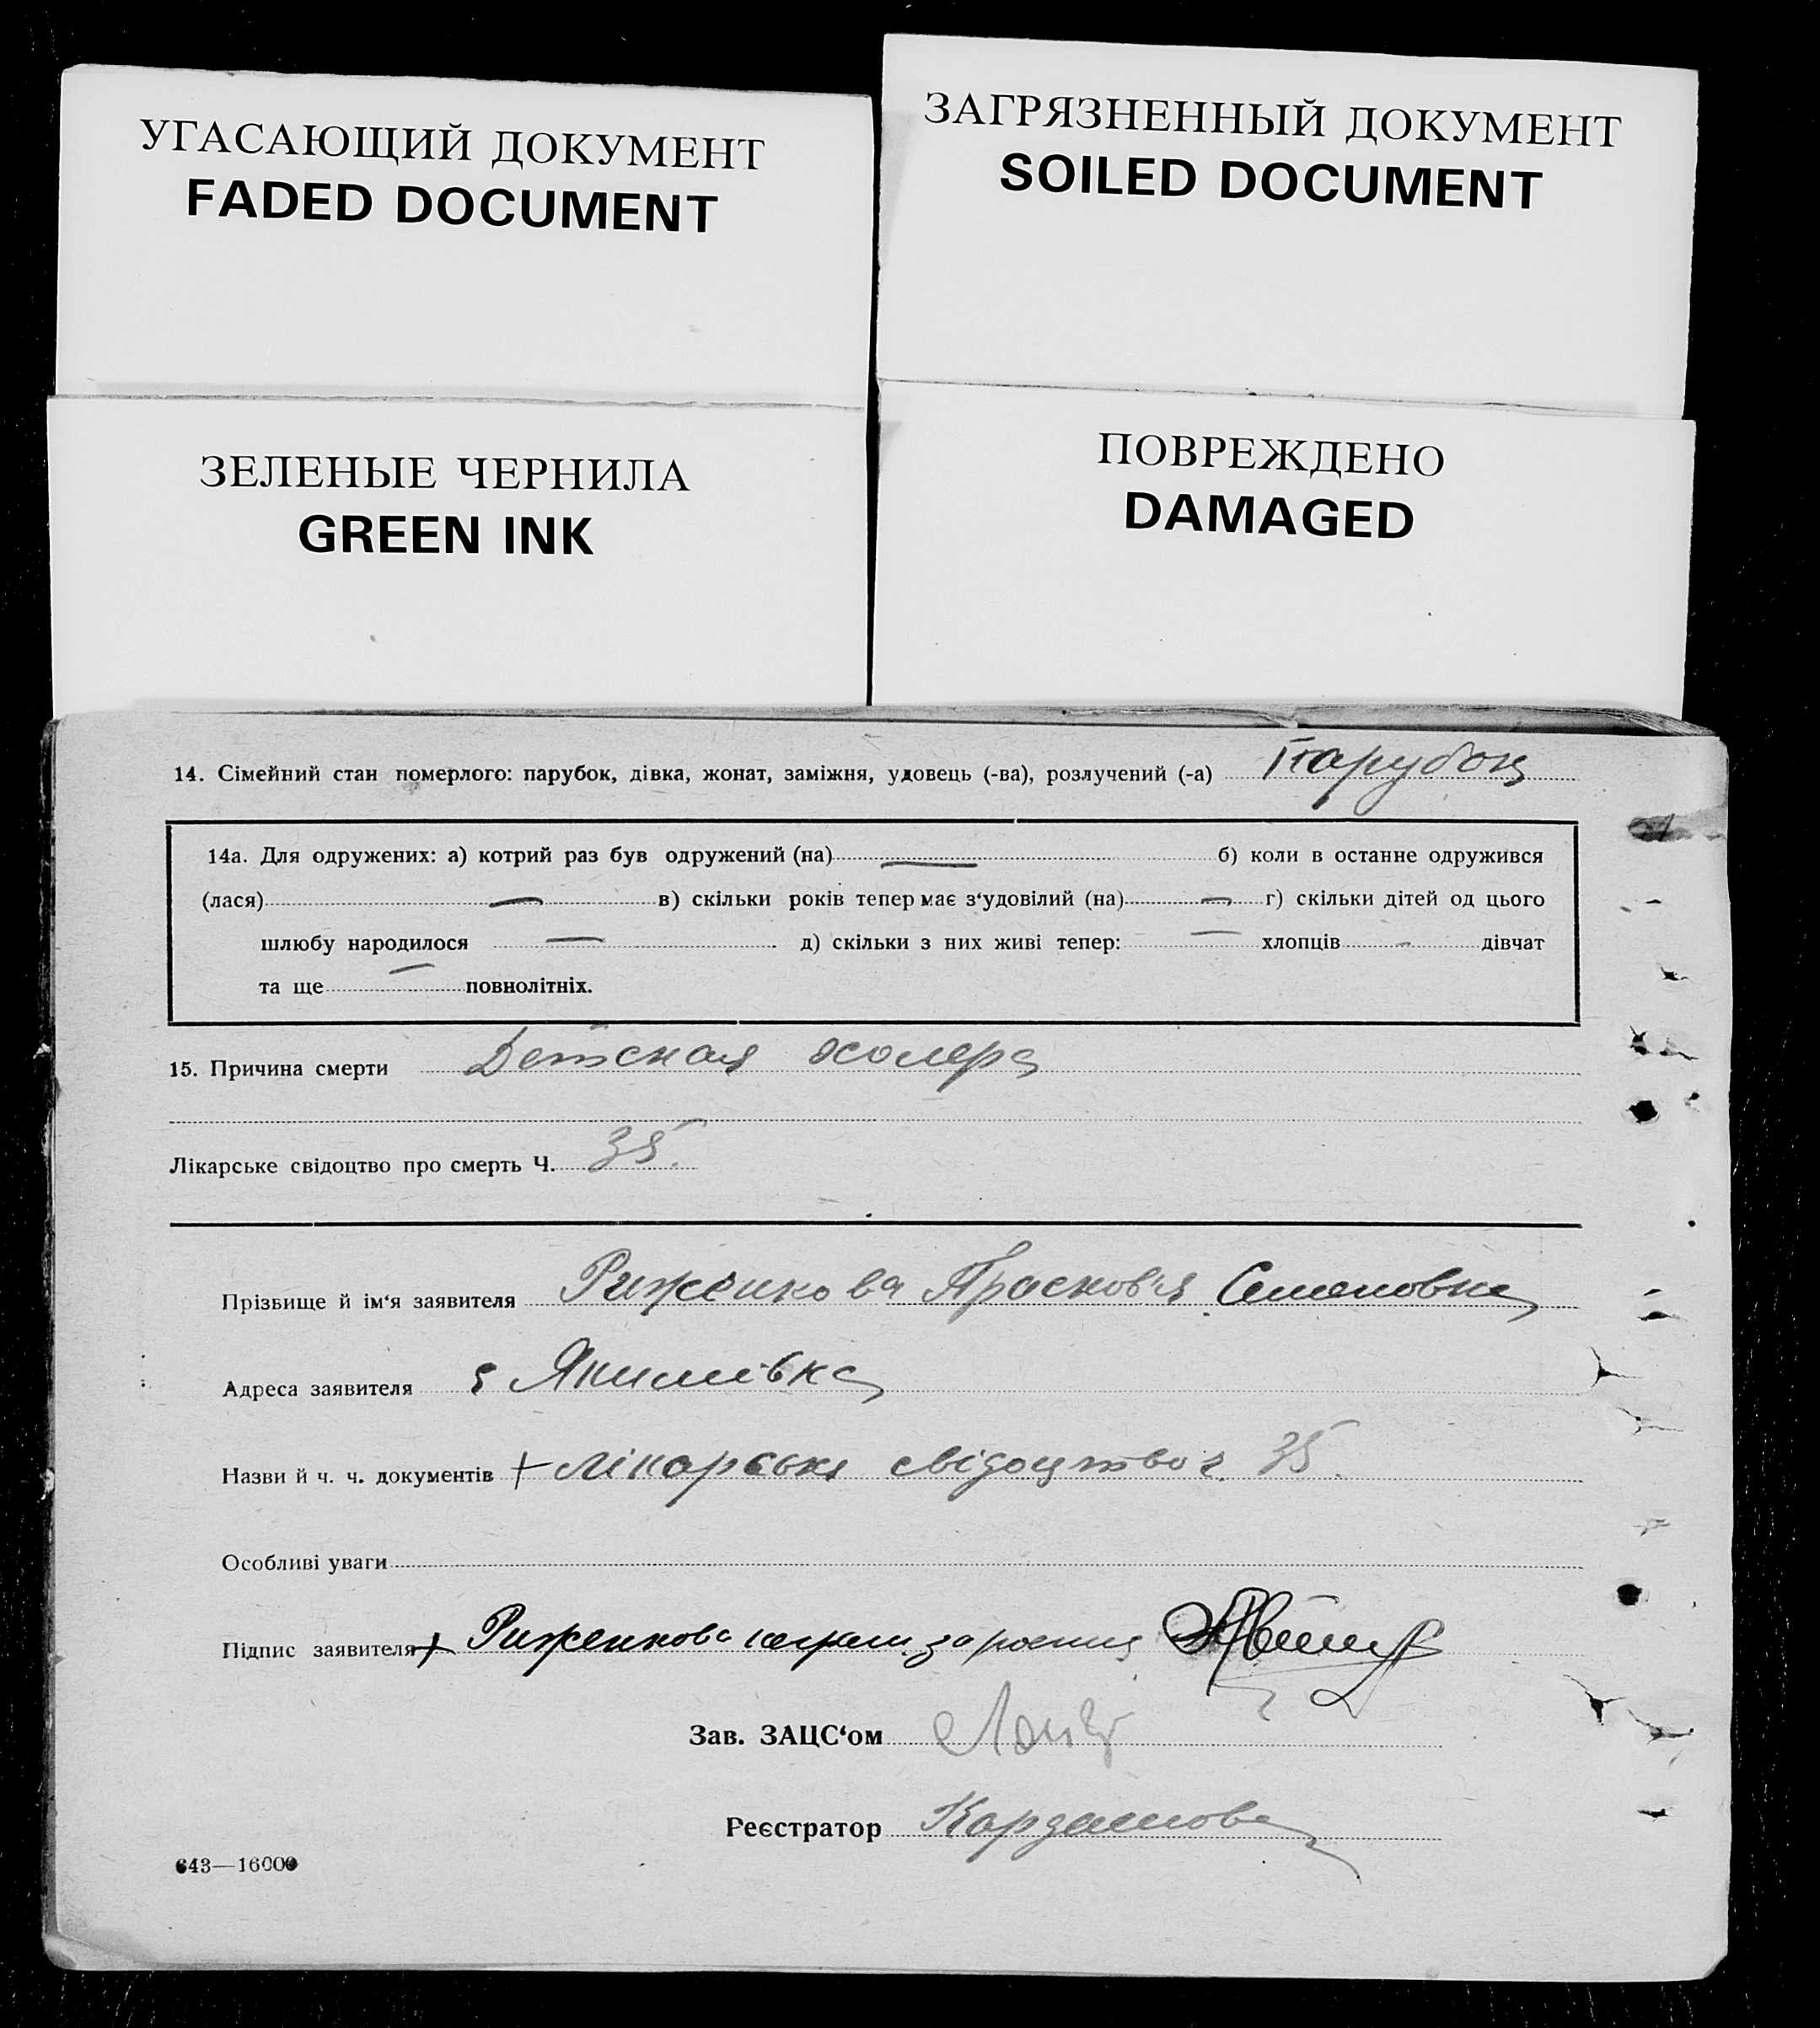 УГАСАЮЩИЙ ДОКУМЕНТ
FADED DOCUMENT
ЗАГРЯЗНЕННЫЙ ДОКУМЕНТ
SOILED DOCUMENT
ЗЕЛЕНЫЕ ЧЕРНИЛА
GREEN INK
ПОВРЕЖДЕНО
DAMAGED
14. Сімейний стан померлого: парубок, дівка, жонат, заміжня, удовець (-ва), розлучений (-а) Парубок
14а. Для одружених: а) котрий раз був одружений (на) — б) коли в останне одружився
(лася) — в) скільки років тепер має з‘удовілий (на) — г) скільки дітей од цього
шлюбу народилося — д) скільки з них живі тепер: — хлопців - дівчат
та ще — повнолітніх.
15. Причина смерти Детская холера
Лікарське свідоцтво про смерть Ч. 35.
Прізвище й ім‘я заявителя Риженкова Прасков'я Семеновна
Адреса заявителя с Якимівка
Назви й ч. ч. документів + лікарське свідоцтво ч. 35.
Особливі уваги
Підпис заявителя + Риженкова
Зав. ЗАЦС‘ом
Реєстратор Кардашова
643—16000